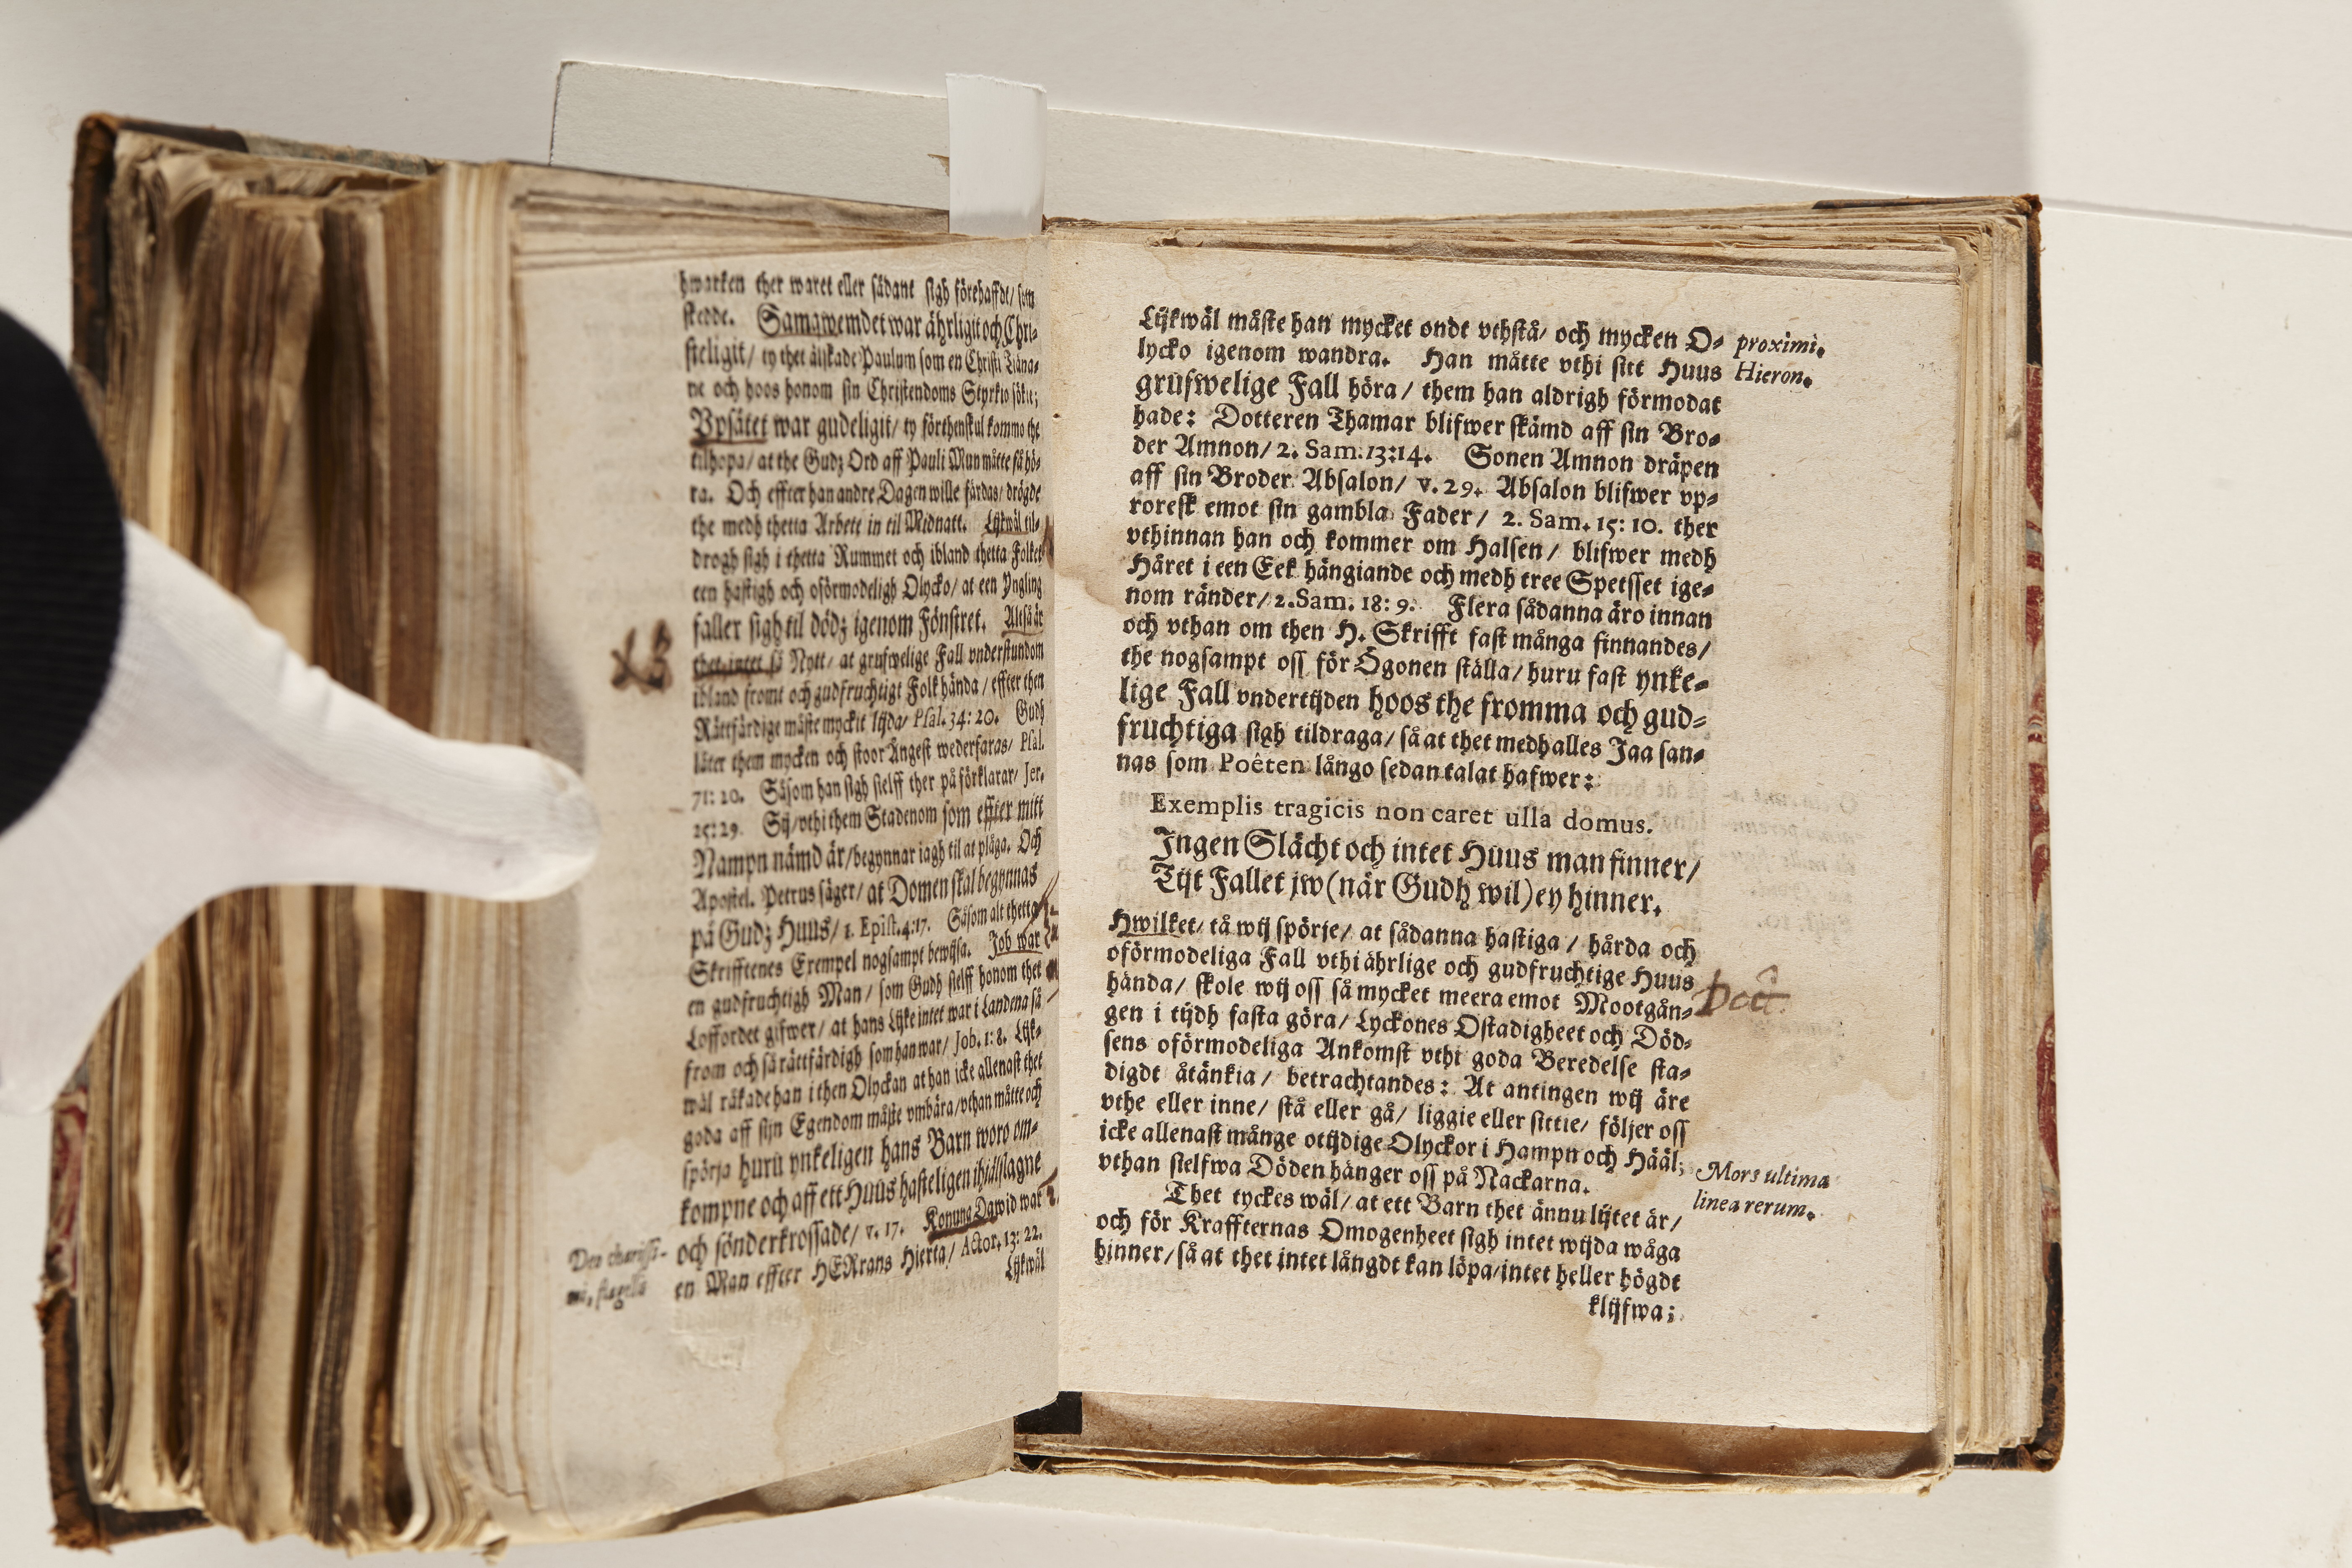 hwarken ther waret eller sådant sigh förehafft/ som
skedde. Samqwemdet war ährligit och Chri-
steligit/ ty thet älskade Paulum som en Christi Tiäna-
re och hoos honom sin Christendoms Styrkio sökte;
Vpsåtet war gudeligit/ ty förthenskul kommo the
tilhopa/ at the Gudz Ord aff Pauli Mun måtte få hö-
ra. Och effter han andre Dagen wille färdas/ drögde
the medh thetta Arbete in til Midnatt. Lijkwäl til-
drogh sigh i thetta Rummet och ibland thetta Folket
een hastigh och oförmodeligh Olycko/ at een Yngling
faller sigh til dödz igenom Fönstret. Altså är
thet intet så Nytt/ at grufwelige Fall vnderstundom
ibland fromt och gudfruchtigt Folk hända/ effter then
Rättfärdige måste myckit lijda/ Psal. 34: 20. Gudh
låter them mycken och stoor Ångest wederfaras/ Psal.
71: 20. Såsom han sigh sielff ther på förklarar/ Jer.
25: 29. Sij/ vthi them Stadenom som effter mitt
Nampn nämd är/ begynnar iagh til at plåga. Och
Apostel. Petrus säger/ at Domen skal begynnas
på Gudz Huus/ 1. Epist. 4: 17. Såsom alt thetta
Skrifftenes Exempel nogsampt bewijsa. Job war
en gudfruchtigh Man/ som Gudh sielff honom thet
Loffordet gifwer/ at hans Lijke intet war i Landena så
from och så rättfärdigh som han war/ Job. 1: 8. Lijk-
wäl råkade han i then Olyckan at han icke allenast thet
goda aff sijn Egendom måste vmbära/ vthan måtte och
spörja huru ynkeligen hans Barn woro om-
kompne och aff ett Huus hasteligen ihiälslagne
och sönderkrossade/ v. 17. Konung Dawid war
en Man effter HERrans Hierta/ Actor. 13: 22.
Deo charissi-
mi, flagella
Lijkwäl
Lijkwäl måste han mycket ondt vthstå/ och mycken O-
lycko igenom wandra. Han måtte vthi sitt Huus
grufwelige Fall höra/ them han aldrigh förmodat
hade: Dotteren Thamar blifwer skämd aff sin Bro-
der Amnon/ 2. Sam. 13: 14. Sonen Amnon dräpen
aff sin Broder Absalon/ v. 29. Absalon blifwer vp-
roresk emot sin gambla Fader/ 2. Sam. 15: 10. ther
vthinnan han och kommer om Halsen/ blifwer medh
Håret i een Eek hängiande och medh tree Spetsset ige-
nom ränder/ 2. Sam. 18: 9. Flera sådanna äro innan
och vthan om then H. Skrifft fast många finnandes/
the nogsampt oss för Ögonen ställa/ huru fast ynke-
lige Fall vndertijden hoos the fromma och gud-
fruchtiga sigh tildraga/ så at thet medhalles Jaa san-
nas som Poëten långo sedan talat hafwer:
Exemplis tragicis non caret ulla domus.
Ingen Slächt och intet Huus man finner/
Tijt Fallet jw (når Gudh wil) ey hinner.
Hwilket/ tå wij spörje/ at sådanna hastiga/ hårda och
oförmodeliga Fall vthi ährlige och gudfruchtige Huus
hända/ skole wij oss så mycket meera emot Mootgån-
gen i tijdh fasta göra/ Lyckones Ostadigheet och Död-
sens oförmodeliga Ankomst vthi goda Beredelse sta-
digdt åtänkia/ betrachtandes: At antingen wij äre
vthe eller inne/ stå eller gå/ liggie eller sittie/ följer oss
icke allenast månge otijdige Olyckor i Hampn och Hääl;
vthan sielfwa Döden hänger oss på Nackarna.
Thet tyckes wäl/ at ett Barn thet ännu lijtet är/
och för Kraffternas Omogenheet sigh intet wijda wåga
hinner/ så at thet intet långdt kan löpa/ intet heller högdt
klijfwa;
proximi.
Hieron.
Doct.
Mors ultima
linea rerum.